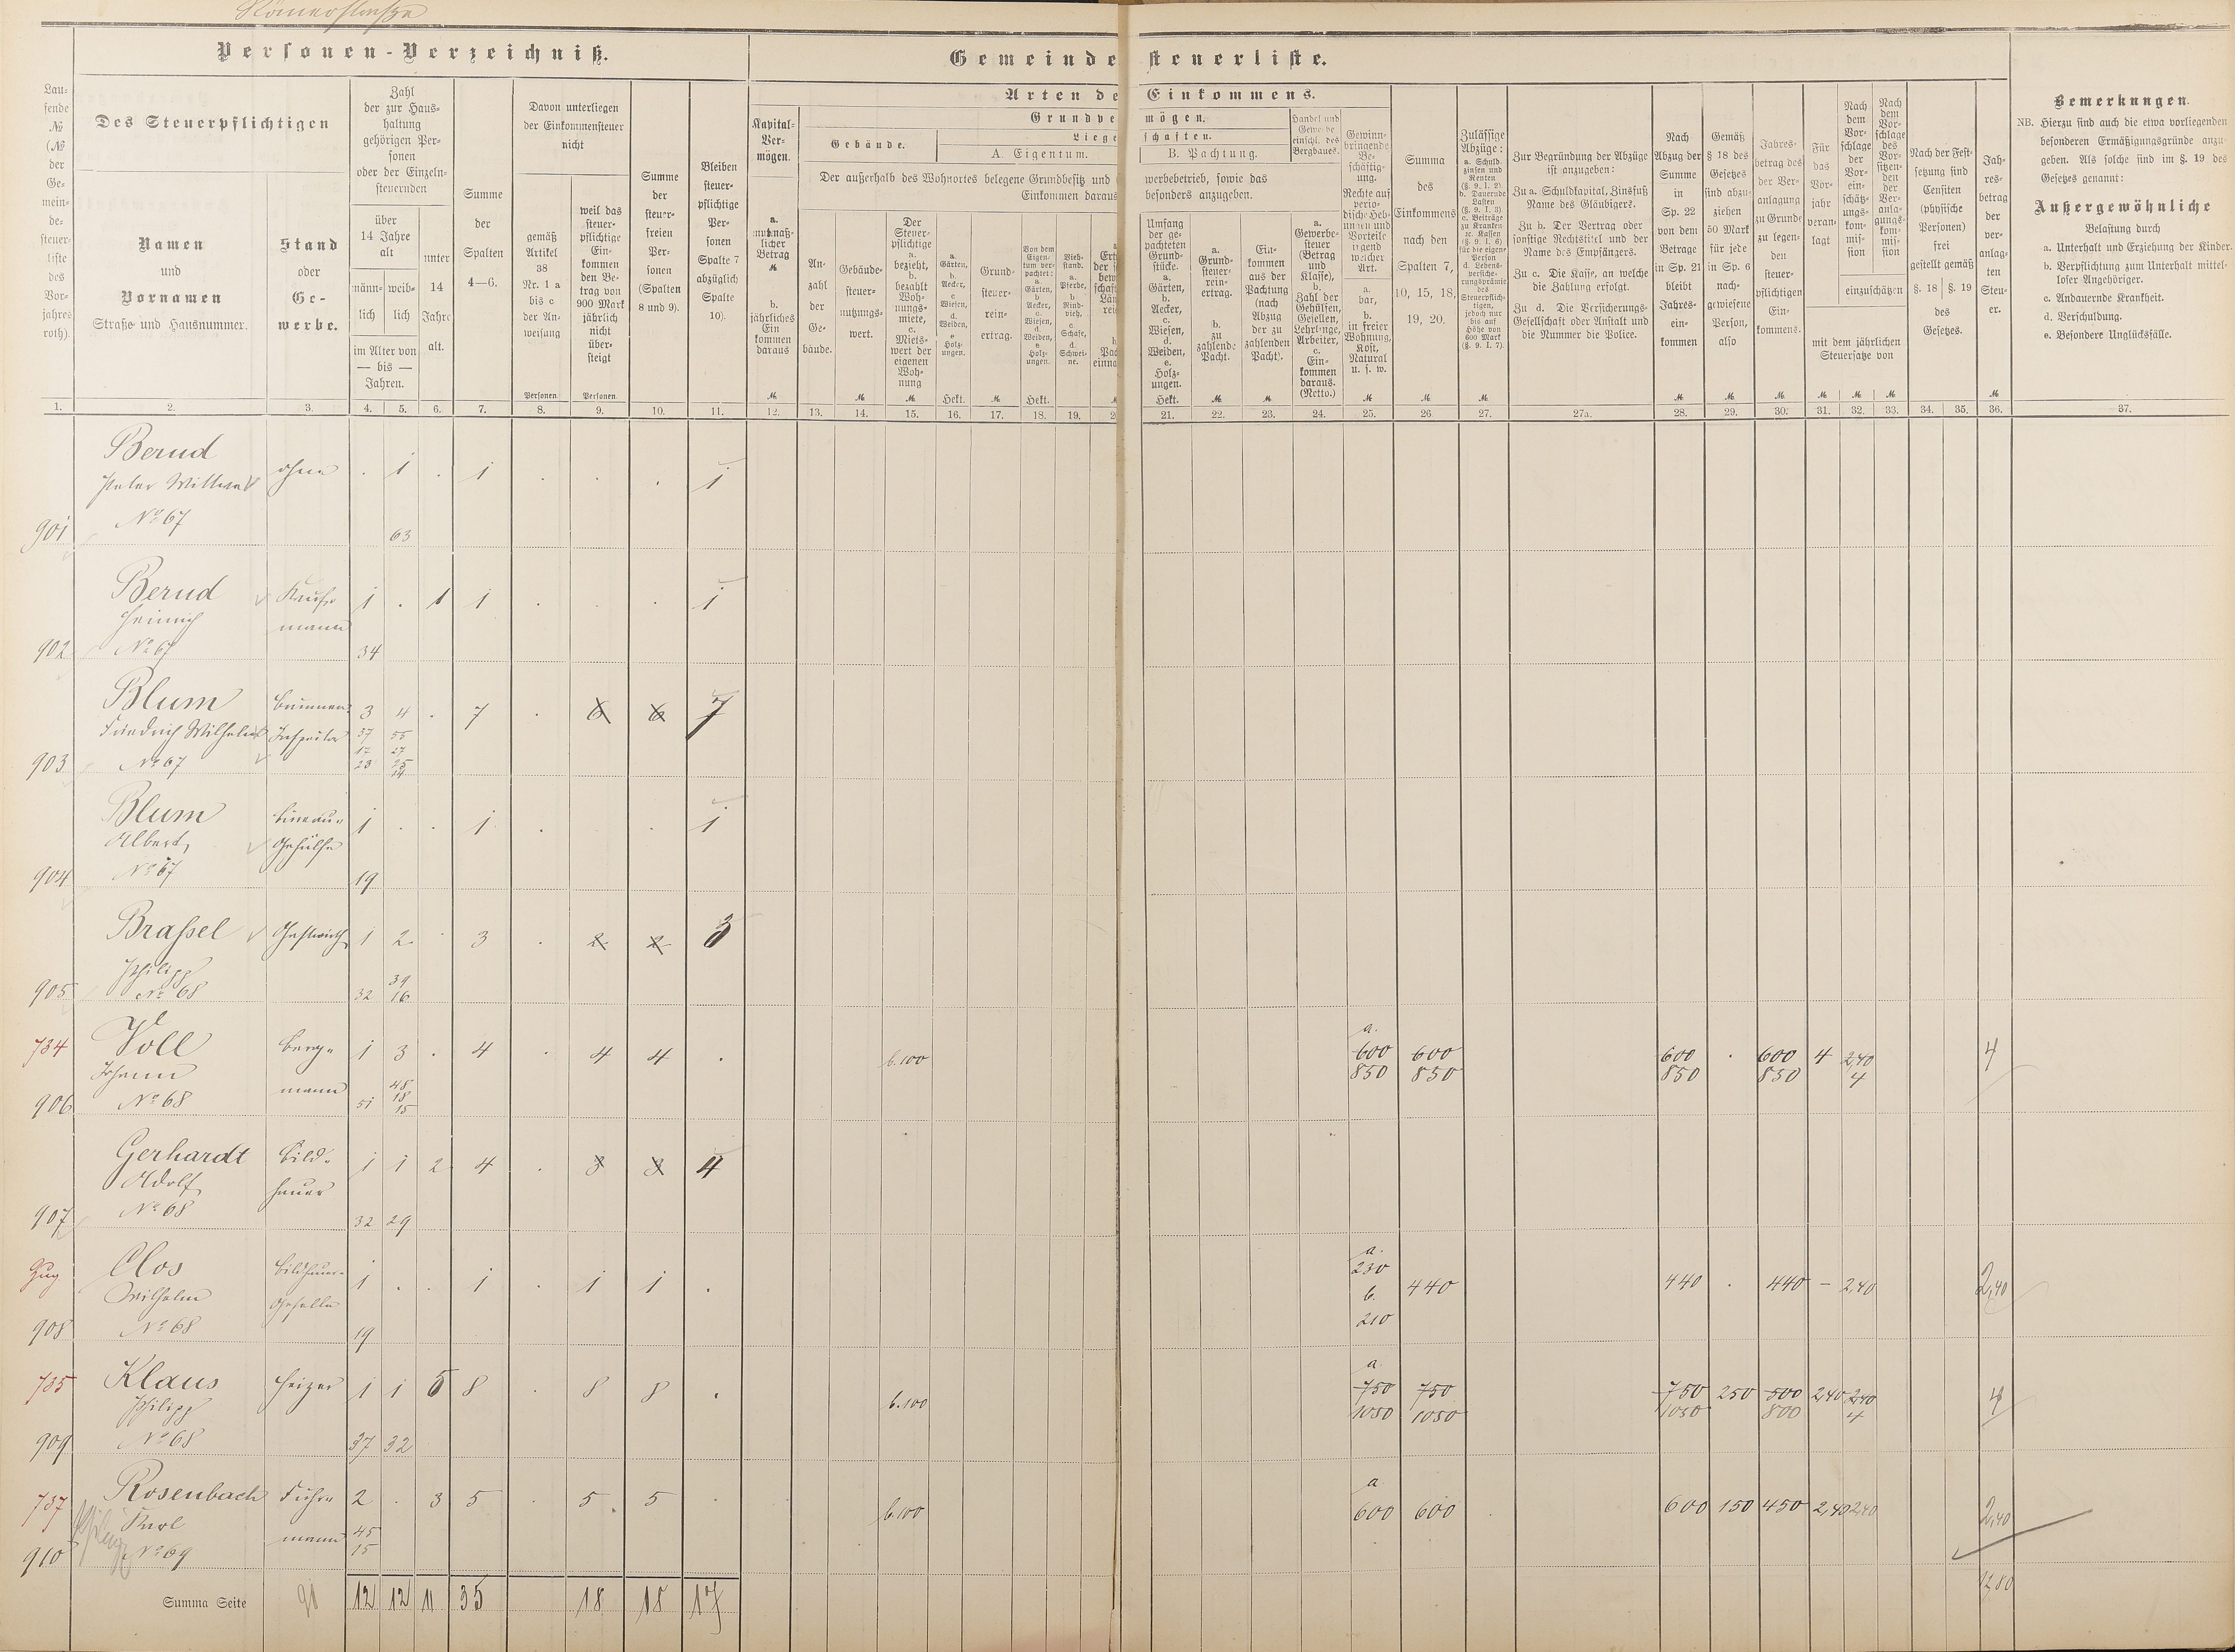 Römerstraße
Personen-Verzeichniß.
Gemeindesteuerliste.
Laufende № (№ der Gemeindesteuerliste des Vorjahres roth).
Des Steuerpflichtigen
Namen und Vornamen
Straße und Hausnummer.
Stand oder Gewerbe.
Zahl der zur Haushaltung gehörigen Personen oder der Einzelnsteuernden
über 14 Jahre alt
männlich
weiblich
im Alter von — bis — Jahren.
unter 14 Jahre alt.
Summe der Spalten 4—6.
Davon unterliegen der Einkommensteuer nicht
gemäß Artikel 38 Nr. 1 a bis c der Anweisung
Personen
weil das steuerpflichtige Einkommen den Betrag von 900 Mark jährlich nicht übersteigt
Personen.
Summe der steuerfreien Personen (Spalten 8 und 9).
Bleiben steuerpflichtige Personen Spalte 7 abzüglich Spalte 10).
Arten de Einkommens.
Kapital-Vermögen.
b. jährliches Einkommen daraus
Grundve mögen.
Gebäude.
Liege schaften.
A. Eigentum.
B. Pachtung.
Der außerhalb des Wohnortes belegene Grundbesitz und
werbebetrieb, sowie das
Einkommen daraus
besonders anzugeben.
Anzahl der Gebäude.
Gebäudesteuernutzungswert.
Der Steuerpflichtige a. bezieht, b. bezahlt Wohnungsmiete, c. Mietswert der eigenen Wohnung
a. Gärten, b. Aecker, c. Wiesen, d. Weiden, e. Holzungen.
Hekt.
Grundsteuerreinertrag.
Von dem Eigentum verpachtet: a. Gärten, b. Aecker, c. Wiesen, d. Weiden, e. Holzungen.
Hekt.
Viehstand. a. Pferde, b. Rindvieh, c. Schafe, d. Schweine.
Umfang der gepachteten Grundstücke. a. Gärten, b. Aecker, c. Wiesen, d. Weiden, e. Holzungen.
Hekt.
a. Grundsteuerreinertrag. b. zu zahlende Pacht.
Einkommen aus der Pachtung (nach Abzug der zu zahlenden Pacht).
Handel und Gewerbe einschl. des Bergbaues.
a. Gewerbesteuer (Betrag und Klasse), b. Zahl der Gehülfen, Gesellen, Lehrlinge, Arbeiter, c. Einkommen daraus. (Netto.)
Gewinnbringende Beschäftigung. Rechte auf periodische Hebungen und Vorteile irgend welcher Art. a. bar, b. in freier Wohnung, Kost, Natural u. s. w.
Summa des Einkommens nach den Spalten 7, 10, 15, 18, 19, 20.
Zulässige Abzüge: a. Schuldzinsen und Renten (§. 9. I. 2). b. Dauernde Lasten (§. 9. I. 3). c. Beträge zu Kranken- 2c. Kassen (§. 9. I. 6) für die eigene Person d. Lebensversicherungsprämie des Steuerpflichtigen, jedoch nur bis auf Höhe von 600 Mark (§. 9. I. 7).
Zur Begründung der Abzüge ist anzugeben:
Zu a. Schuldkapital, Zinsfuß Name des Gläubigers.
Zu b. Der Vertrag oder sonstige Rechtstitel und der Name des Empfängers.
Zu c. Die Kasse, an welche die Zahlung erfolgt.
Zu d. Die Versicherungs-Gesellschaft oder Anstalt und die Nummer die Police.
Nach Abzug der Summe in Sp. 22 von dem Betrage in Sp. 21 bleibt Jahreseinkommen
Gemäß § 18 des Gesetzes sind abzuziehen 50 Mark für jede in Sp. 6 nachgewiesene Person, also
Jahresbetrag des der Veranlagung zu Grunde zu legenden steuerpflichtigen Einkommens.
Für das Vorjahr veranlagt
Nach dem Vorschlage der Voreinschätzungskommission
Nach dem Vorschlage des Vorsitzenden der Veranlagungskommission
einzuschätzen
mit dem jährlichen Steuersatze von
Nach der Festsetzung sind Censiten (physische Personen) frei gestellt gemäß
§. 18 | §. 19 des Gesetzes.
Jahresbetrag der veranlagten Steuer.
Bemerkungen.
NB. Hierzu sind auch die etwa vorliegenden besonderen Ermäßigungsgründe anzugeben. Als solche sind im §. 19 des Gesetzes genannt:
Außergewöhnliche
Belastung durch
a. Unterhalt und Erziehung der Kinder.
b. Verpflichtung zum Unterhalt mittelloser Angehöriger.
c. Andauernde Krankheit.
d. Verschuldung.
e. Besondere Unglücksfälle.
1. 2. 3. 4. 5. 6. 7. 8. 9. 10. 11. 12. 13. 14. 15. 16. 17. 18. 19. 2 21. 22. 23. 24. 25. 26. 27. 27a. 28. 29. 30. 31. 32. 33. 34. 35. 36. 37.
Bernd ohne . 1 . 1 . . . 1
Peter Wittwe
901 № 67 63
Bernd Kauf- 1 . 1 1 . . . 1
Heinrich mann
902 № 67 34
Blum Brunnen- 3 4 . 7 . 6 6 7
Friedrich Wilhelm Inspector 37 55
17 27
903 № 67 23 25
14
Blum Bureau- 1 . . 1 . . . 1
Albert Gehülfe
904 № 67 19
Braßel Gastwirth 1 2 . 3 . 2 2 3
Philipp 39
905 № 68 32 16
734 Voll Berg- 1 3 . 4 . 4 4 . b. 100 a. 600 600 600 . 600 4 2,40 4
Johann mann 48 850 850 850 850 4
18
906 № 68 51 15
Gerhardt Bild- 1 1 2 4 . 3 3 4
Adolf hauer
907 № 68 32 29
Zug Clos Bildhauer- 1 . . 1 . 1 1 . a. 230 440 440 . 440 – 2,40 2,40
Wilhelm Geselle b. 210
908 № 68 19
735 Klaus Heizer 1 1 6 8 . 8 8 . b. 100 a. 750 750 750 250 500 2,40 2,40 4
Philipp 1050 1050 1050 800 4
909 № 68 37 32
737 Rosenbach Fuhr- 2 . 3 5 . 5 5 . b. 100 a. 600 600 600 150 450 2,40 2,40 2,40
Karl mann 45
Philipp 15
910 № 69
12,80
Summa Seite 91 12 12 11 35 18 18 17